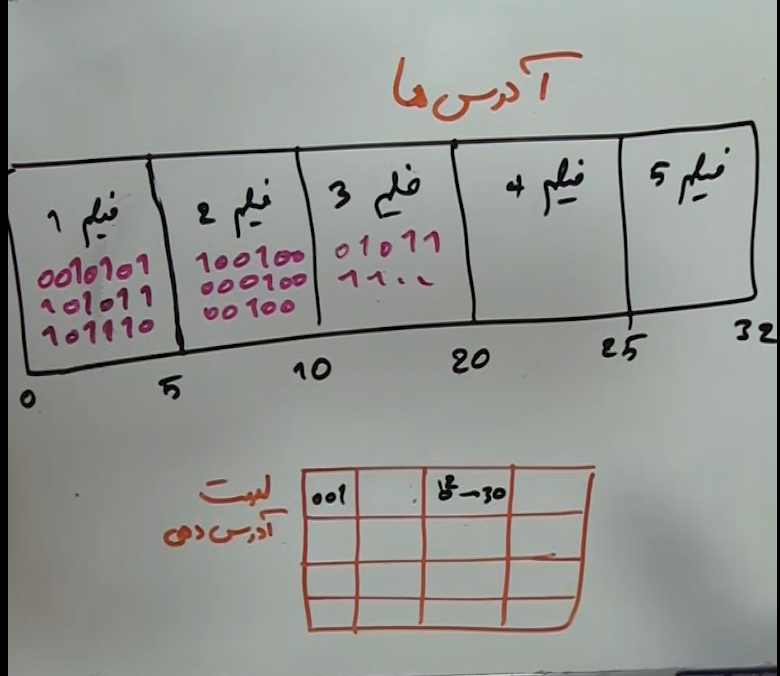 آدرس ها
فیلم 1
0010101
101011
101110
فیلم 2
100100
000100
00100
فیلم 3
01011
1100
فیلم 4
فیلم 5
0 5 10 20 25 32
لیست
آدرس دهی
001
→30